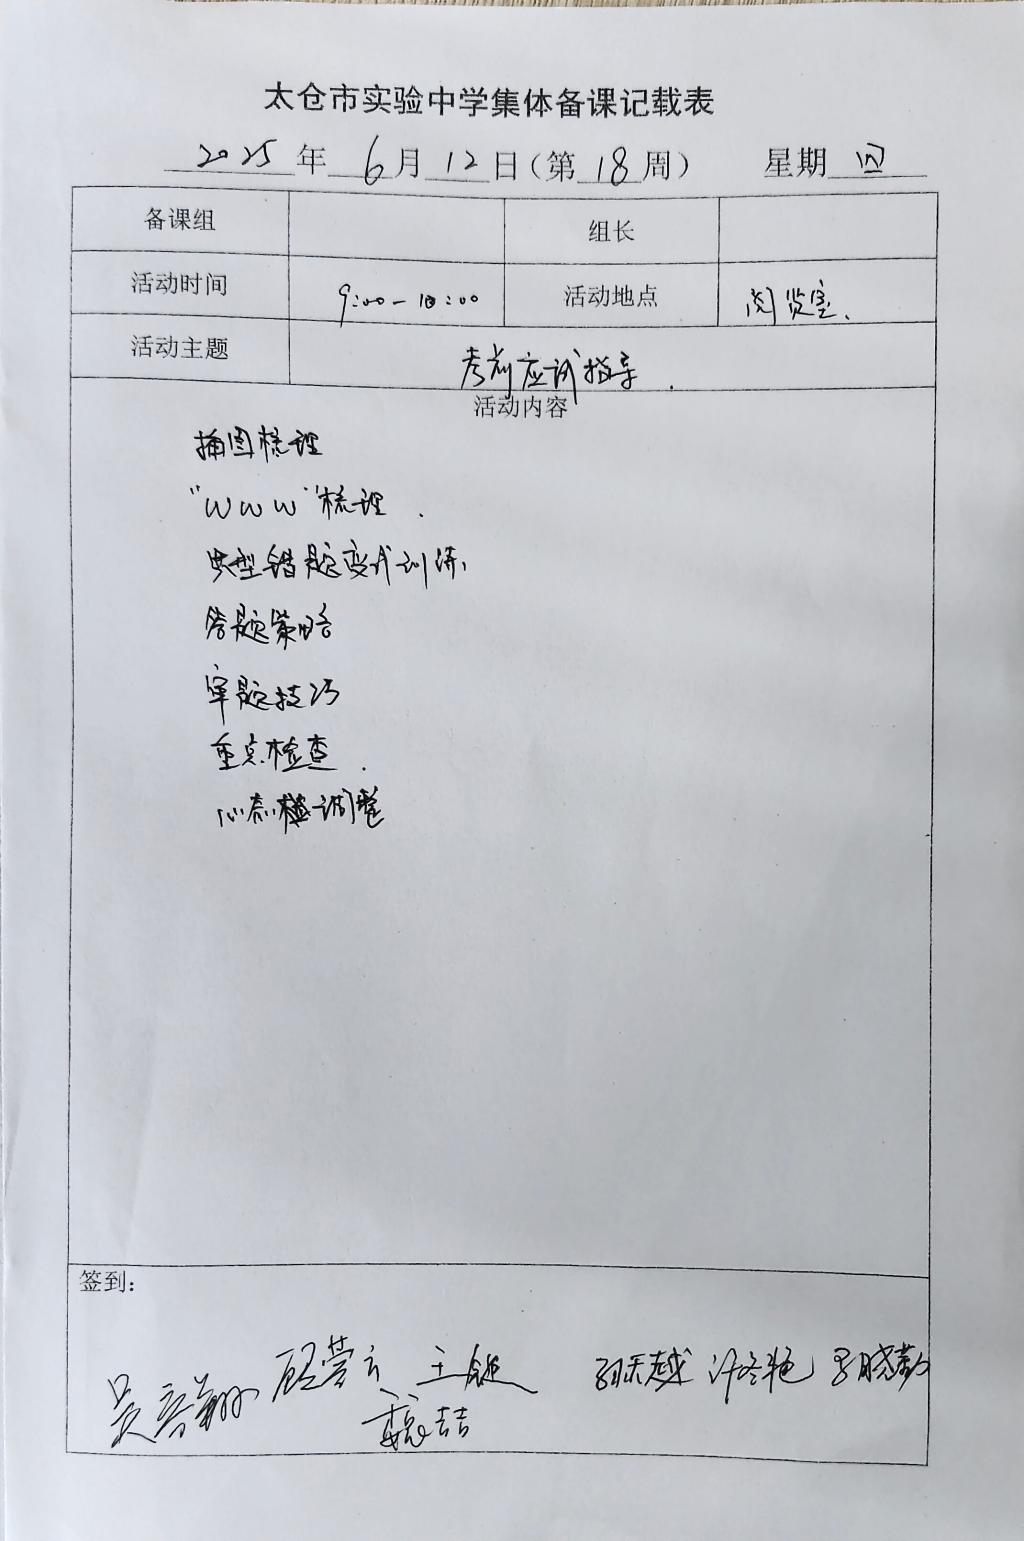 太仓市实验中学集体备课记载表
2025年6月12日(第18周) 星期四
备课组 组长
活动时间 9:00-10:00 活动地点 阅览室.
活动主题 考前应试指导.
活动内容
插图梳理
"WWW"梳理.
典型错题变式训练
答题策略
审题技巧
重点检查.
心态调整
签到:
顾营云 王继 许冬艳
魏喆